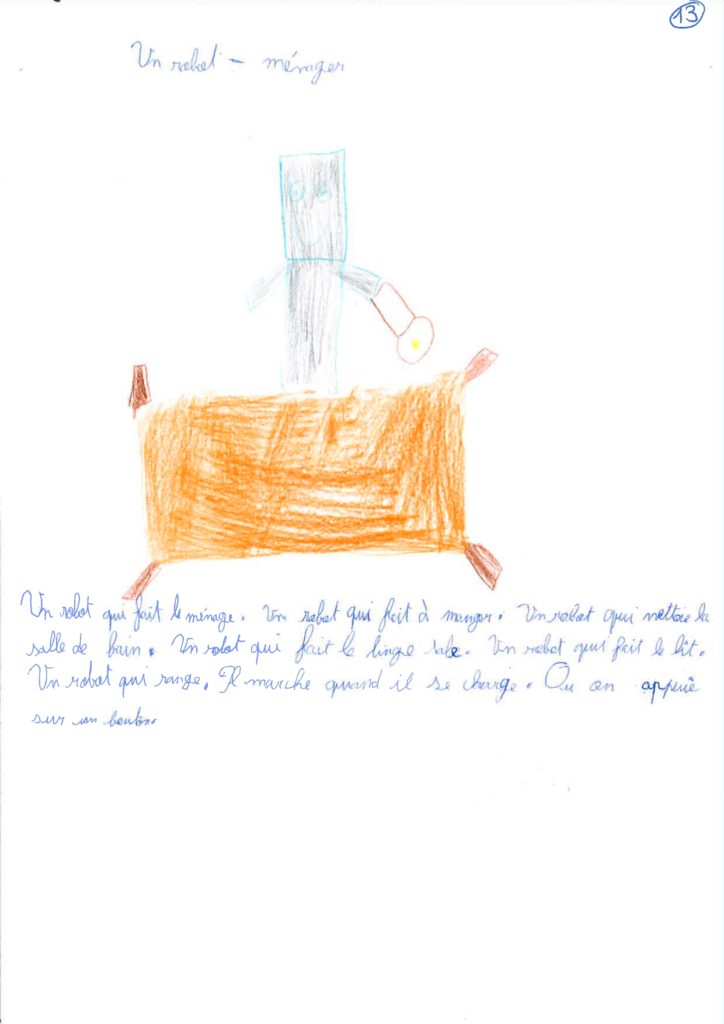 13
Un robot - ménager
Un robot qui fait le ménage. Un robot qui fait à manger. Un robot qui nettoie la
salle de bain. Un robot qui fait le linge sale. Un robot qui fait le lit.
Un robot qui range. Il marche quand il se charge. Ou on appuie
sur un bouton.